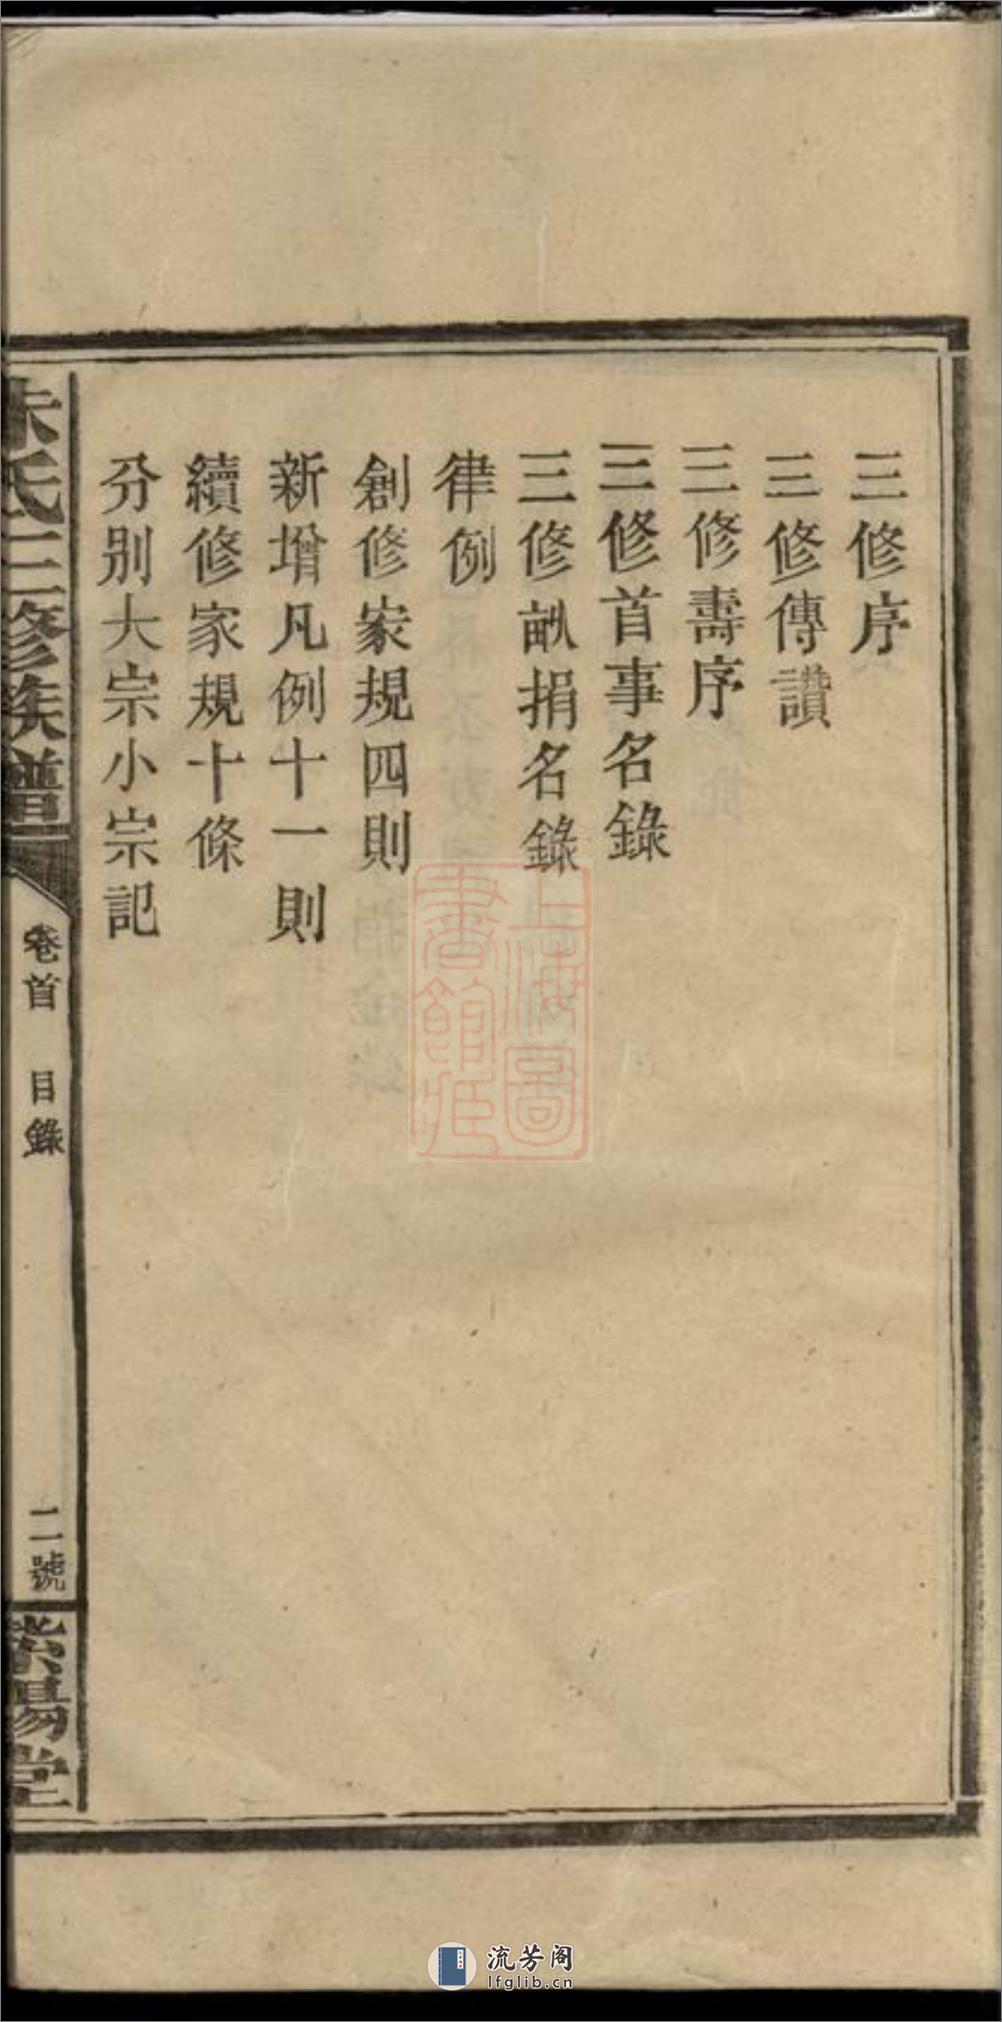 三修序
三修傳讚
三修壽序
三修首事名錄
三修畝捐名錄
律例
創修家規四則
新增凡例十一則
續修家規十條
分別大宗小宗記
朱氏三修族譜
卷首 目錄
二號
紫陽堂
上海圖書館藏
流芳阁
lfglib.cn